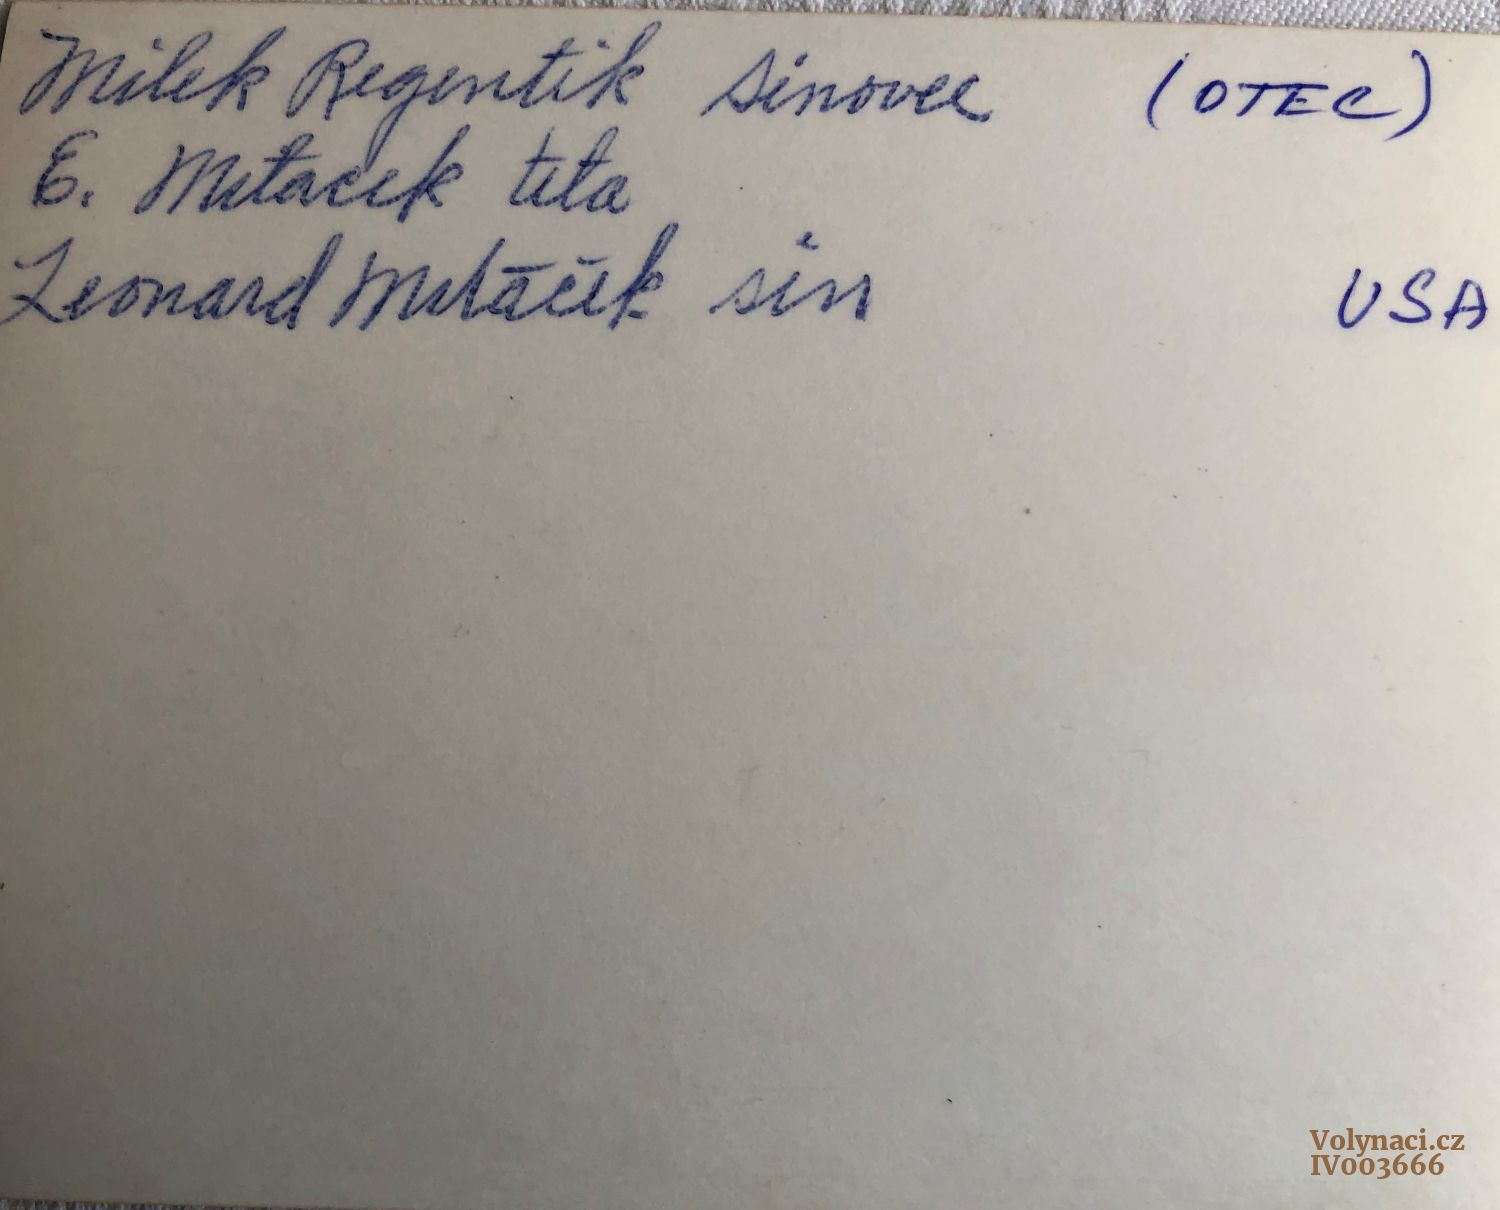 Milek Regentik sinovec (OTEC)
E. Metacek teta
Leonard Metáček sin USA
Volynaci.cz
IV003666